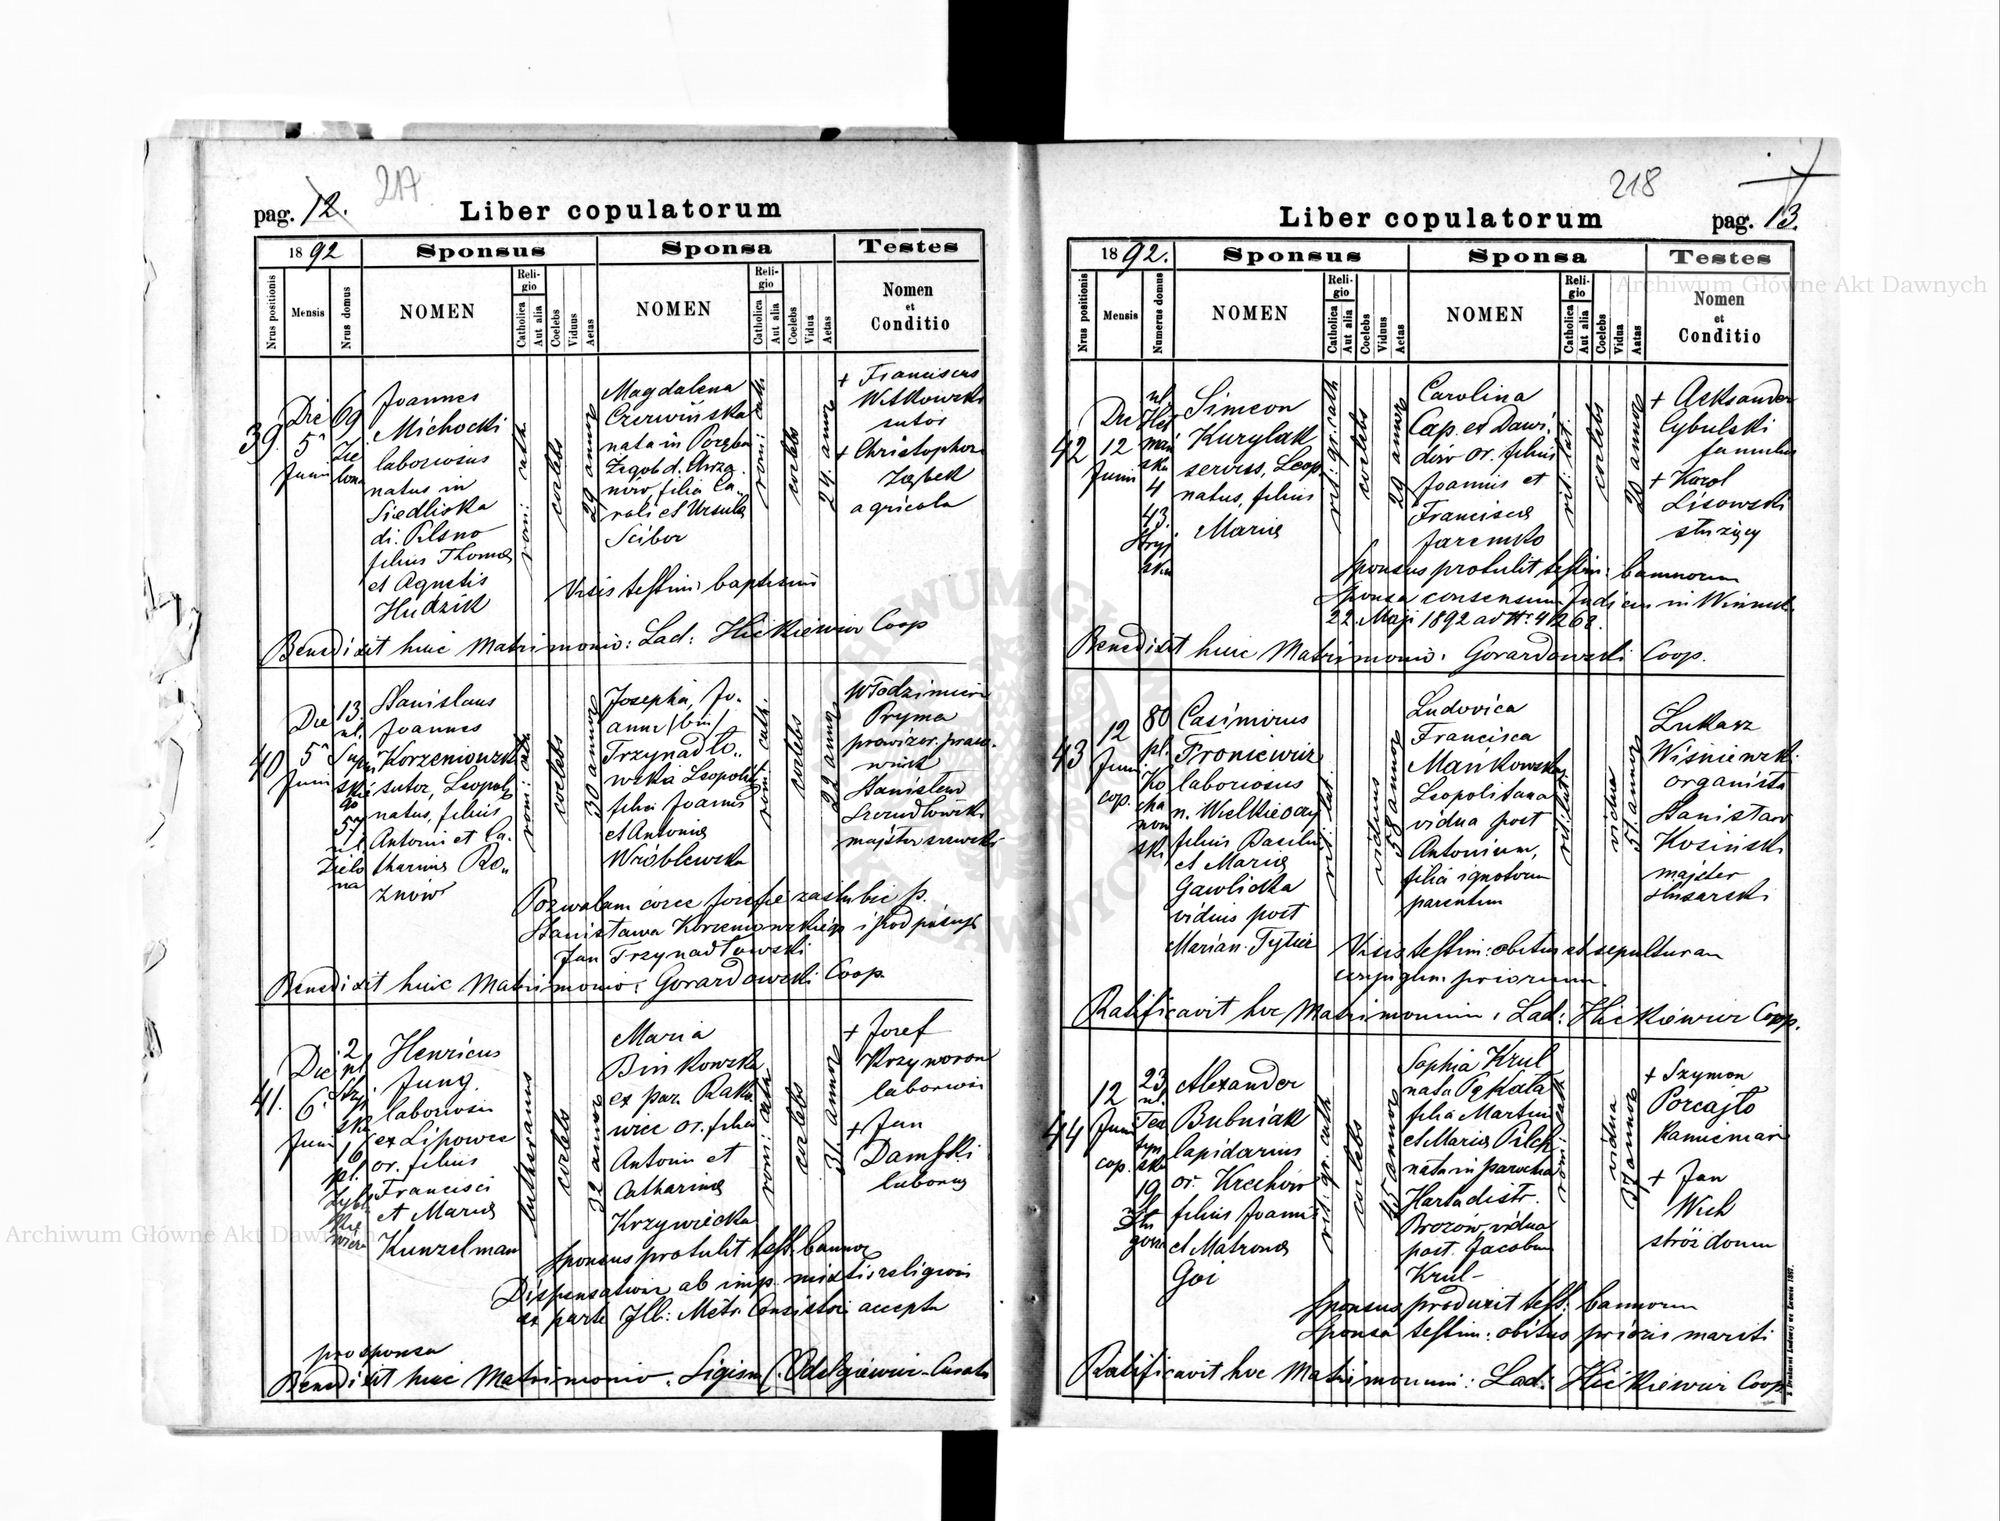 pag. 12.
217
Liber copulatorum
1892
Sponsus
Sponsa
Testes
Nrus positionis
Mensis
Nrus domus
NOMEN
Religio
Catholica
Aut alia
Coelebs
Viduus
Aetas
NOMEN
Religio
Catholica
Aut alia
Coelebs
Vidua
Aetas
Nomen
et
Conditio
39.
Die
5ª
Juni
69
Zie
lona
Joannes
Michocki
laboriosus
natus in
Siedliska
di. Pilsno
filius Thomae
et Agnetis
Hudzik
rom: cath.
coelebs
29 annor
Magdalena
Czerwińska
nata in Poręba
Żegot d. Chrza
nów, filia Ca
roli et Ursulae
Scibor
rom: cath.
coelebs
24. annor
+ Franciscus
Witkowski
sutor
+ Christophor
Ząbek
agricola
Visis testim: baptismi
Benedixit huic Matrimonio: Lad: Hickiewicz Coop
40
Die
5ª
Juni
13.
ul.
57
ul
Zielo
na
Stanislaus
Joannes
Korzeniowski
sutor, Leopoli
natus, filius
Antonii et Ca
tharinae Ro
znów
rom: cath
coelebs
30 annor
Josepha, Jo
anna /bin/
Trzynadło
wska Leopoli
filia Joannis
et Antoniae
Wróblewska
rom: cath.
coelebs
22 annor
Włodzimierz
Pryma
Stanisław
Szczudłowski
majster szewski
Pozwalam córce Józefie zaślubić p.
Stanisława Korzeniowskiego i podpisuję
Jan Trzynadłowski
Benedixit huic Matrimonio: Gorardowski Coop
41.
Die
6.
Juni
2
pl.
Stryj
ski
16
pl.
Henricus
Jung.
laborios
ex Lipowce
or. filius
Francisci
et Mariae
Kunzelman
lutheranus
coelebs
32 annor
Maria
Binkowska
ex par. Rako
wiec or. filia
Antonii et
Catharinae
Krzywiecka
rom: cath
coelebs
31. annor
+ Josef
Krzyworon
laborios
+ Jan
Damski
laborios
Sponsus protulit test. bannor
Dispensatione ab imp. mixtis religionis
ex parte Ill: Metr. Consistorii accepta
pro sponsa
Benedixit huic Matrimonio. Sigism. Odelgiewicz
218
Liber copulatorum
pag. 13.
1892.
Sponsus
Sponsa
Testes
Nrus positionis
Mensis
Numerus domus
NOMEN
Religio
Catholica
Aut alia
Coelebs
Viduus
Aetas
NOMEN
Religio
Catholica
Aut alia
Coelebs
Vidua
Aetas
Nomen
et
Conditio
42
Die
12
Juni
ul
Het
mań
ska
4
43.
Stryj
ska
Simeon
Kurylak
servus, Leop.
natus, filius
Mariae
rit: gr. cath
coelebs
29 annor
Carolina
Cap. ex Dawi
dów or. filia
Joannis et
Francisca
Jaremko
rit: lat.
coelebs
20 annor
+ Aleksander
Cybulski
famulus
+ Karol
Lisowski
służący
Sponsus protulit testim: bannorum
Sponsa consensum Judicii in Winnik
22 Maji 1892 ad Nr. 41262.
Benedixit huic Matrimonio. Gorardowski Coop.
43
12
Juni
cop.
80
pl.
Ko
cha
now
ski
Casimirus
Froniewicz
laboriosus
n. Wielkie oczy
filius Basilii
et Mariae
Gawlicka
viduus post
Marian. Tytus
rit: lat.
viduus
58 annor
Ludovica
Francisca
Mańkowska
Leopolitana
vidua post
Antonium,
filia ignotorum
parentum
rit: lat
vidua
51 annor
Lukasz
Wiśniewski
organista
Stanisław
Kosiński
majster
ślusarski
Visis testim: obitus et sepulturae
conjugum priorum.
Ratificavit hoc Matrimonium: Lad: Hickiewicz Coop.
44
12
Juni
cop.
23
ul.
19
Alexander
Bubniak
lapidarius
or. Krechów
filius Joannis
et Matronae
Goi
rit: gr. cath
coelebs
45 annor
Sophia Krul
nata Pękala
filia Martini
et Mariae Pilch
nata in parochia
Harta distr.
Brozów, vidua
post. Jacobum
Krul-
rom: cath
vidua
37 annor
+ Szymon
Porcajło
kamieniarz
+ Jan
Wich
stróż domu
Sponsus produxit test: bannorum
Sponsa testim: obitus prioris mariti
Ratificavit hoc Matrimonium: Lad: Hickiewicz Coop
Z Drukarni Ludowej we Lwowie 1887.
Archiwum Główne Akt Dawnych
Archiwum Główne Akt Dawnych
ARCHIWUM GŁÓWNE AKT DAWNYCH